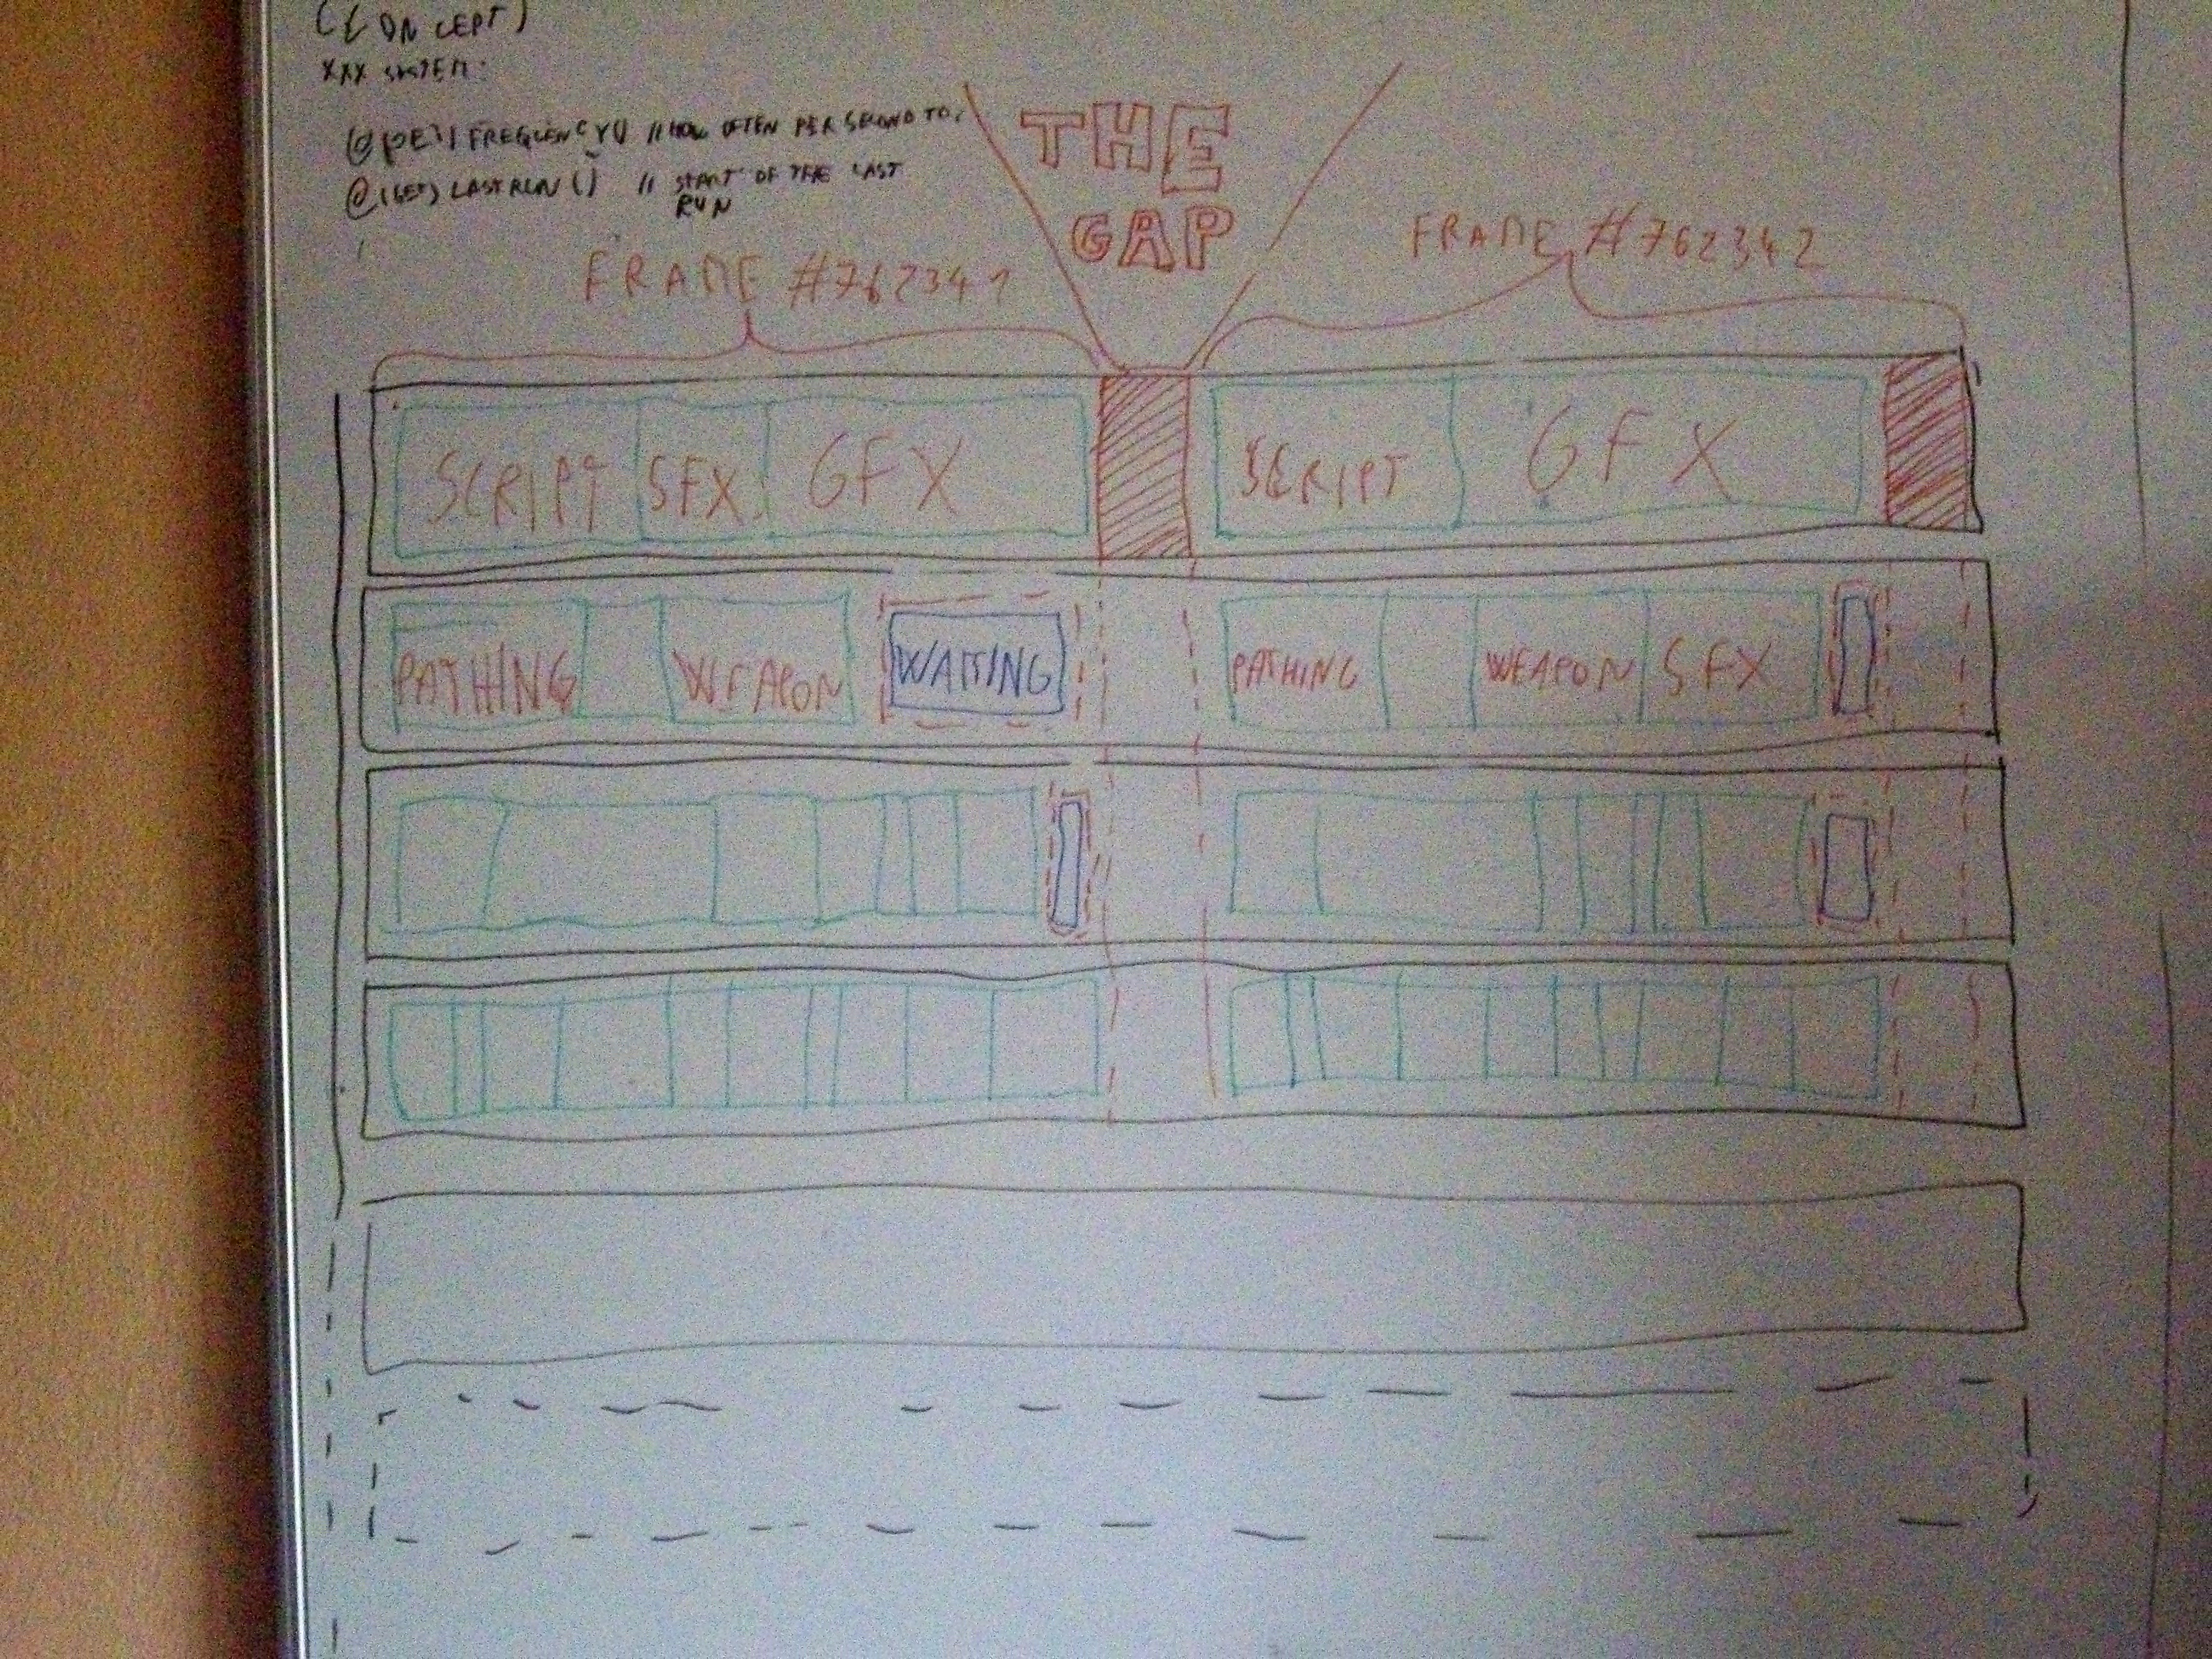 (CONCEPT)
XXX SYSTEM:
FREQUENCY() // HOW OFTEN PER SECOND TO
@(GET) LASTRUN() // START OF THE LAST
RUN
THE
GAP
FRAME #762341
FRAME #762342
SCRIPT SFX GFX
SCRIPT GFX
PATHING WEAPON WAITING
PATHING WEAPON SFX